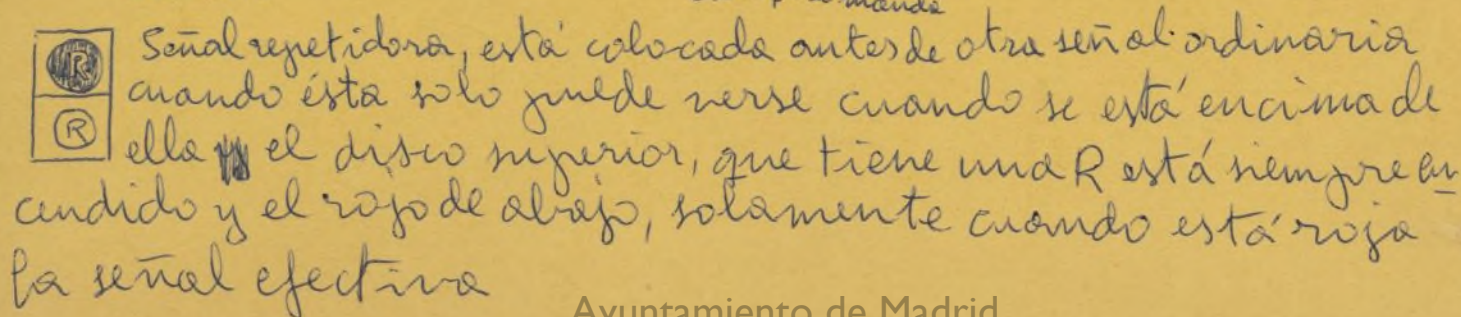 manda
Señal repetidora, está colocada antes de otra señal ordinaria
cuando ésta solo puede verse cuando se está encima de
ella el disco superior, que tiene una R está siempre en
cendido y el rojo de abajo, solamente cuando está roja
la señal efectiva
R
R
Ayuntamiento de Madrid